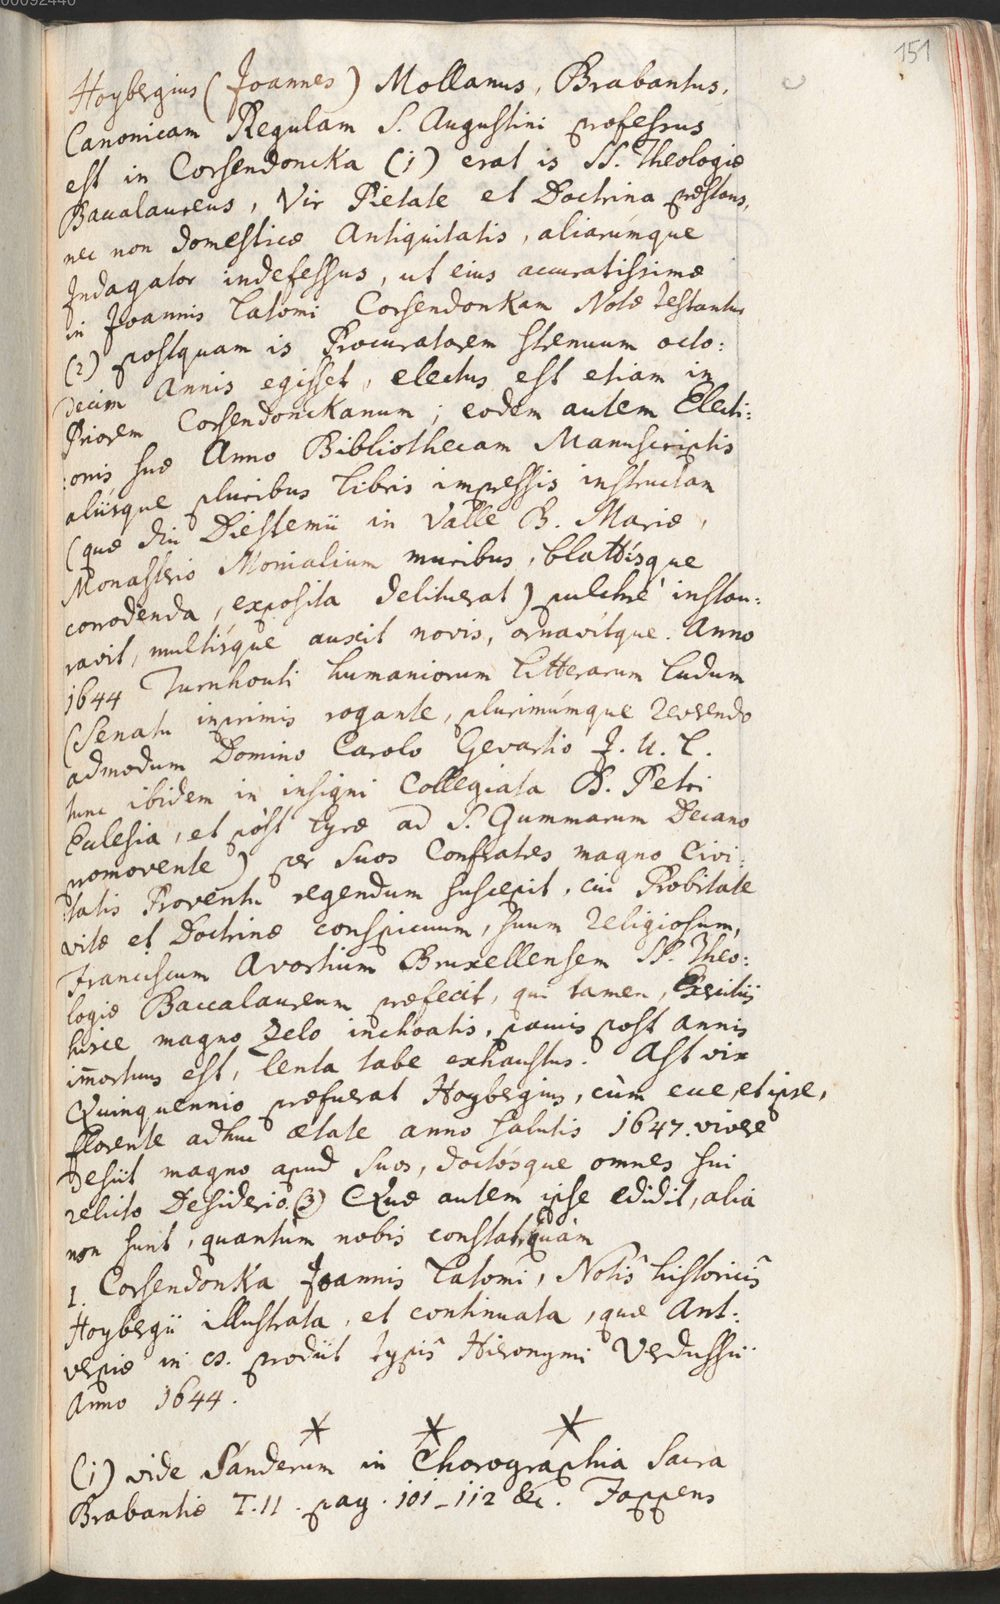 00092440
151
Hoybergius (Joannes) Mollanus, Brabantus,
Canonicam Regulam S. Augustini professus
est in Corsendoncka (1) erat is SS. Theologiæ
Baccalaureus, Vir Pietate et Doctrina præstans,
nec non domesticæ Antiquitatis, aliarúmque
Indagator indefessus, ut eius accuratissimæ
in Joannis Latomi Corsendonkam Notæ testantur
(2) postquam is Procuratorem strenuum octo:
decim Annis egisset, electus est etiam in
Priorem Corsendonckanum; eodem autem Electi:
:onis suæ Anno Bibliothecam Manuscriptis
aliisque pluribus Libris impressis instructam
(quæ diu Diestemii in Valle B. Mariæ,
Monasterio Monialium muribus, blattisque
corrodenda, exposita delituerat) pulchrè instau:
ravit, multisque auxit novis, ornavitque. Anno
1644 Turnhouti humaniorum Litterarum Ludum
(Senatu inprimis rogante, plurimúmque Reverendo
admodum Domino Carolo Gevartio J. U. L.
tunc ibidem in insigni Collegiata B. Petri
Ecclesia, et pòst Lyræ ad S. Gummarum Decano
promovente) per suos Confratres magno Civi:
:tatis Proventu regendum suscepit, cui Probitate
vitæ et Doctrinæ conspicuum, suum Religiosum,
Franciscum Avortium Bruxellensem SS. Theo:
logiæ Baccalaureum præfecit, qui tamen, Exercitiis
hisce magno Zelo inchoatis, paucis post annis
im̄ortuus est, lenta tabe exhaustus. Ast vix
Quinquennio præfuerat Hoybergius, cùm ecce, et ipse,
florente adhuc ætate anno salutis 1647. vivere
desiit magno apud suos, doctósque omnes sui
relicto Desiderio. (3) Quæ autem ipse edidit, alia
non sunt, quantùm nobis constat, quàm
1. Corsendonka Joannis Latomi, Notis historicis
Hoybergii illustrata, et continuata, quæ Ant:
verpiæ in 12. prodiit typis Hieronymi Verdussii
Anno 1644.
* * *
(1) vide Sanderum in Chorographia Sacra
Brabantiæ T. II. pag. 101-112 &c. Foppens